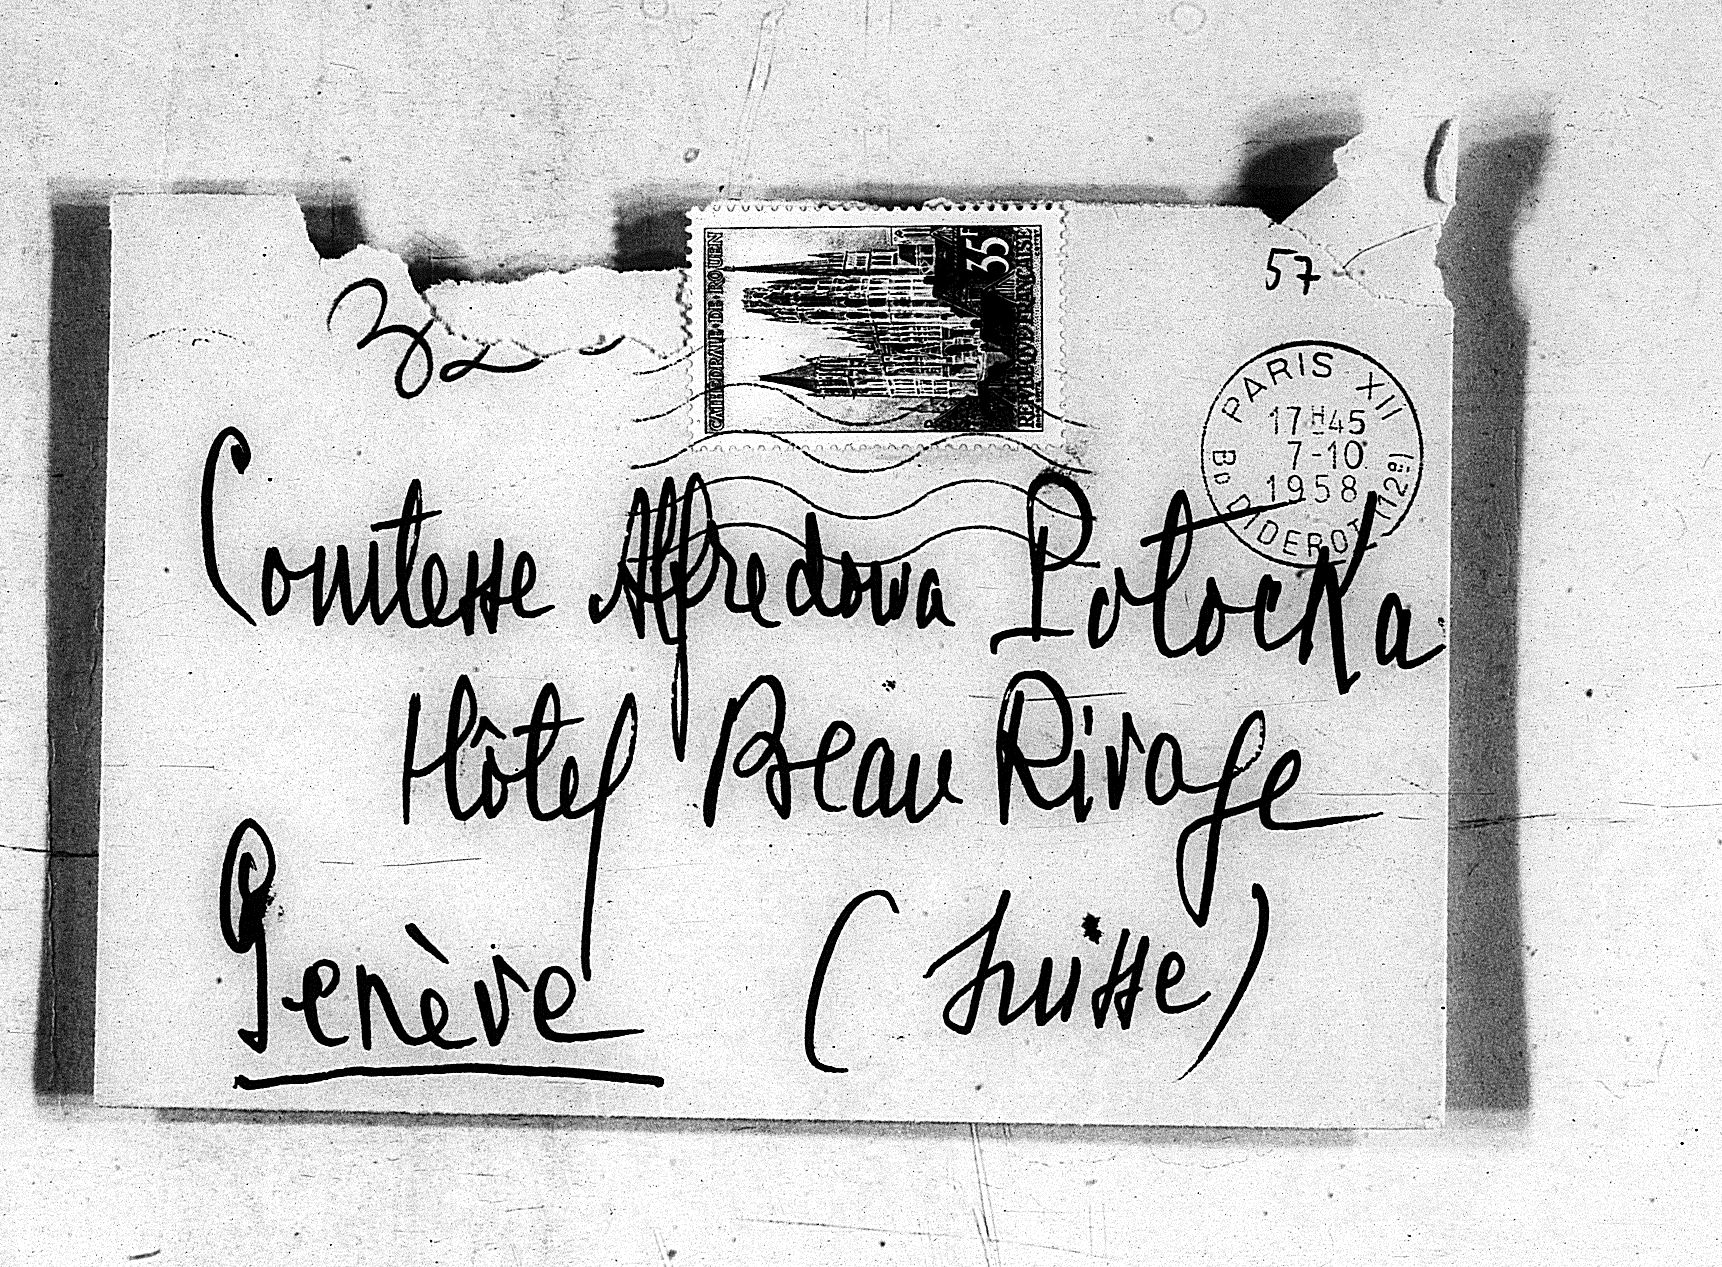 CATHÉDRALE DE ROUEN
35F
RÉPUBLIQUE FRANÇAISE
57
32
PARIS XII
17H45
7-10
1958
BD DIDEROT (12e)
Comtesse Alfredowa Potocka
Hôtel Beau Rivage
Genève (Suisse)